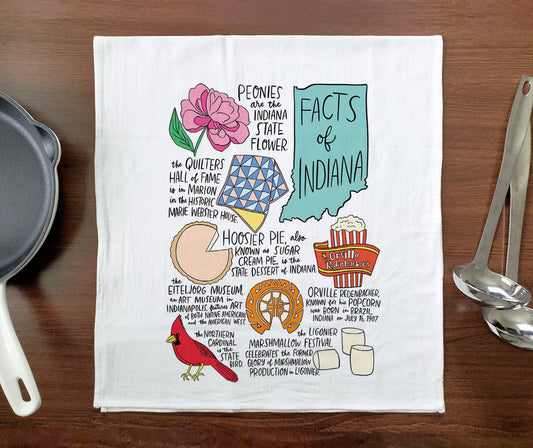 PEONIES
are the
INDIANA
STATE
FLOWER.
FACTS
of
INDIANA
the QUILTERS
HALL of FAME
is in MARION
in the HISTORIC
MARIE WEBSTER HOUSE.
HOOSIER PIE, also
KNOWN as SUGAR
CREAM PIE, is the
STATE DESSERT of INDIANA.
Orville
Redenbacher's
the
EITELJORG MUSEUM,
an ART MUSEUM in
INDIANAPOLIS, features ART
of BOTH NATIVE AMERICANS
and the AMERICAN WEST.
ORVILLE REDENBACHER,
KNOWN for his POPCORN
was BORN in BRAZIL,
INDIANA on JULY 16, 1907
the NORTHERN
CARDINAL
is the
STATE
BIRD.
the LIGONIER
MARSHMALLOW FESTIVAL
CELEBRATES the FORMER
GLORY of MARSHMALLOW
PRODUCTION in LIGONIER.